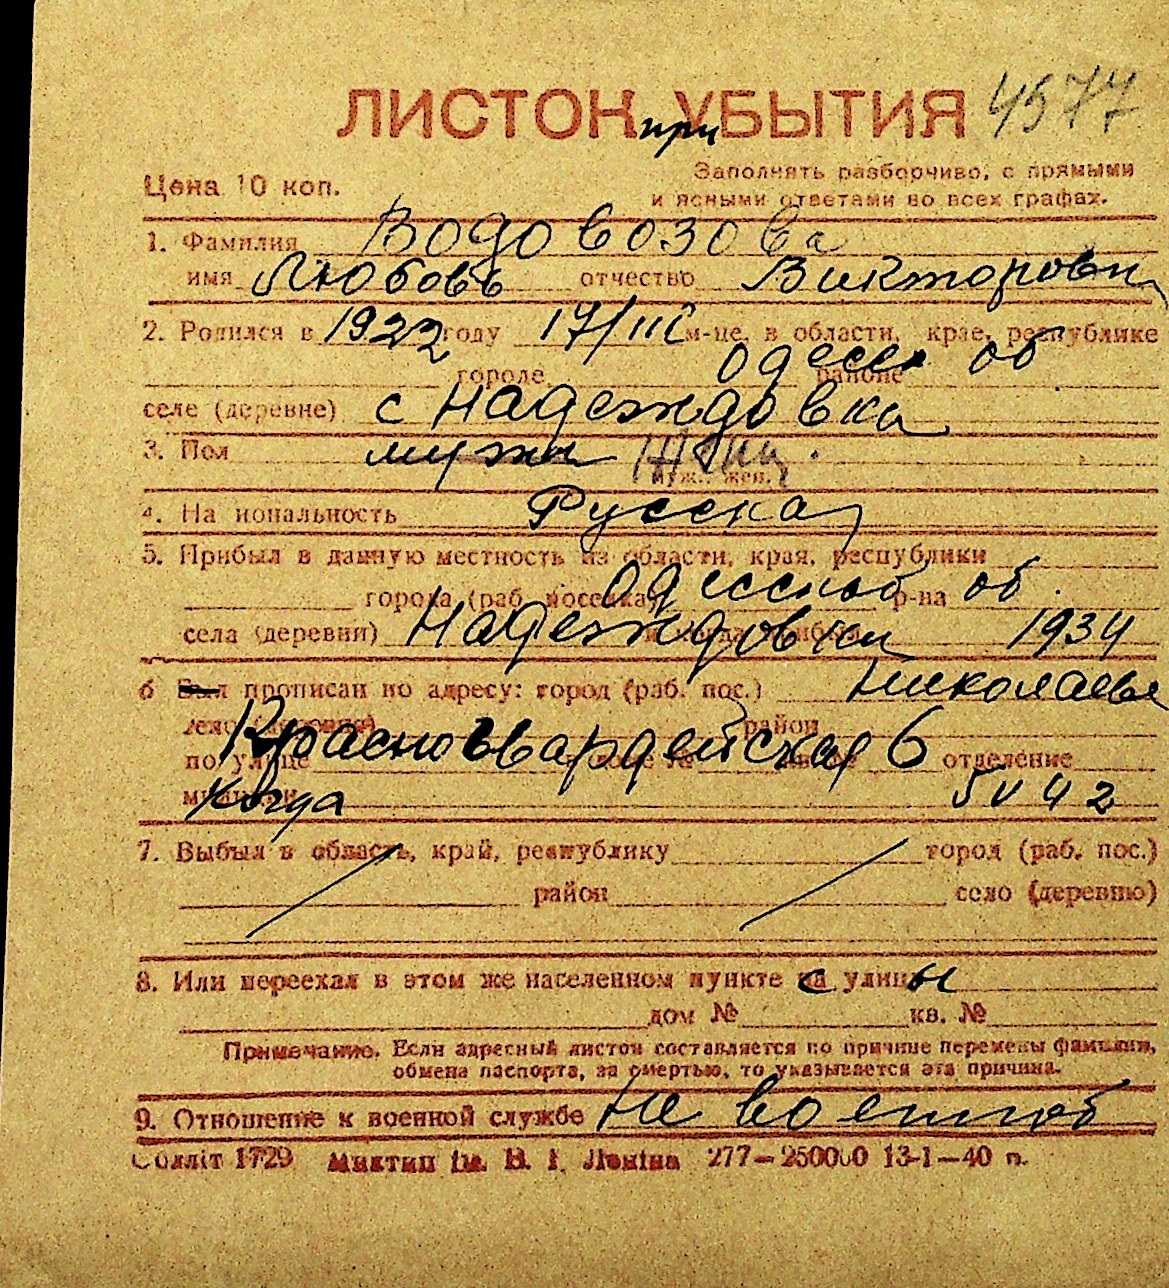 ЛИСТОК при УБЫТИЯ 4577
Цена 10 коп.
Заполнять разборчиво, с прямыми
и ясными ответами во всех графах.
1. Фамилия Водовозова
имя Любовь отчество Викторовн
2. Родился в 1922 году 17/III м-це, в области, крае, республике
городе Одесс районе об
селе (деревне) с Надеждовка
3. Пол мужч женщ.
муж., жен.
4. На иональность Русская
5. Прибыл в данную местность из области, края, республики
города (раб. поселка) Одесской р-на об.
села (деревни) Надеждовки 1934
6 Был прописан по адресу: город (раб. пос.) Николаеве
село (деревня) район
по улице Красногвардейская 6 отделение
Когда 5 V 42
7. Выбыл в область, край, республику город (раб. пос.)
район село (деревню)
8. Или переехал в этом же населенном пункте с улицы
дом № кв. №
Примечание. Если адресный листок составляется по причине перемены фамилии,
обмена паспорта, за смертью, то указывается эта причина.
9. Отношение к военной службе Не военнооб
Обллiт 1729 Миктип iм. В. I. Ленiна 277—250000 13-1—40 п.